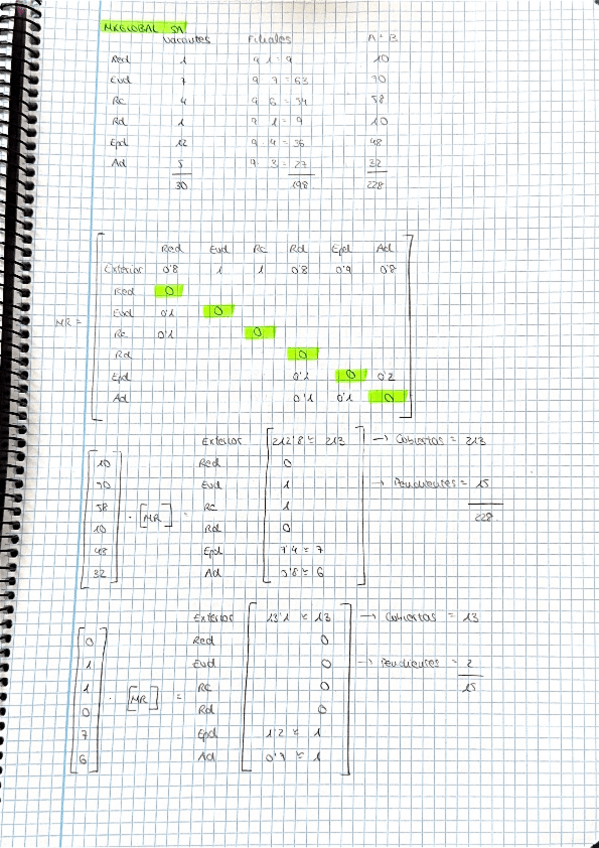 MKGLOBAL SA
Vacantes Filiales A + B
Red 1 9 · 1 = 9 10
Eud 7 9 · 7 = 63 70
Rc 4 9 · 6 = 54 58
Rd 1 9 · 1 = 9 10
Epd 12 9 · 4 = 36 48
Ad 5 9 · 3 = 27 32
30 198 228
Red Eud Rc Rd Epd Ad
Exterior 0'8 1 1 0'8 0'9 0'8
Red 0
Eud 0'1 0
MR =
Rc 0'1 0
Rd 0
Epd 0'1 0 0'2
Ad 0'1 0'1 0
Exterior 212'8 ≈ 213 → Cubiertas = 213
10 Red 0
70 Eud 1 → Pendientes = 15
58 · [MR] = Rc 1 228
10 Rd 0
48 Epd 7'4 ≈ 7
32 Ad 5'8 ≈ 6
Exterior 13'1 ≈ 13 → Cubiertas = 13
0 Red 0
1 Eud 0 → Pendientes = 2
1 · [MR] = Rc 0 15
0 Rd 0
7 Epd 1'2 ≈ 1
6 Ad 0'7 ≈ 1